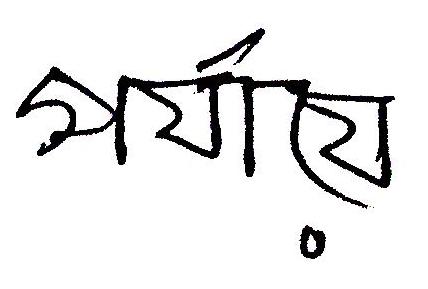 পর্যায়ে